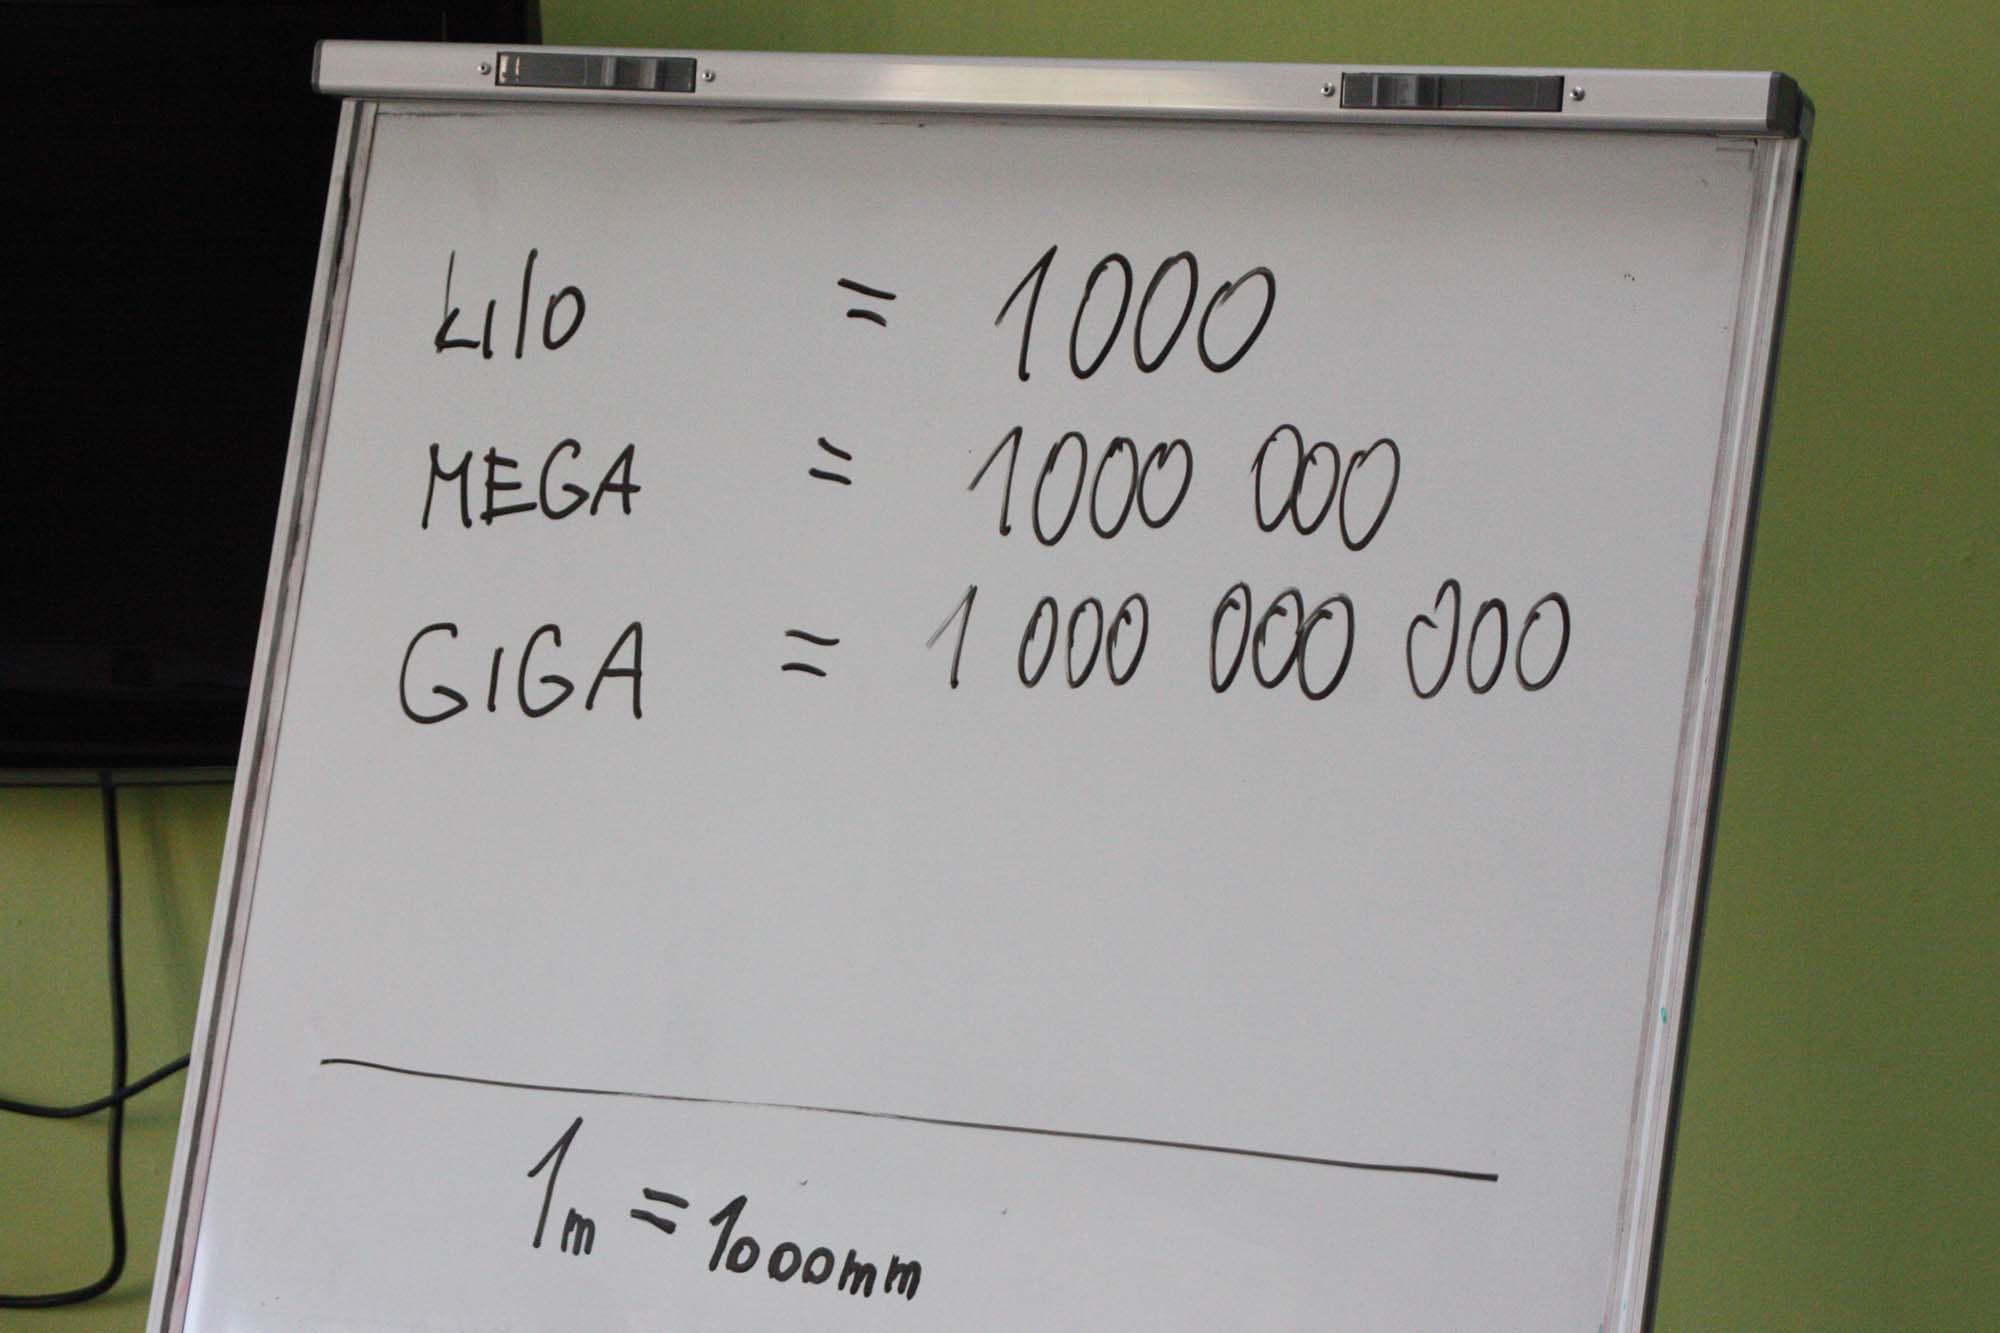 kilo = 1000
MEGA = 1000 000
GIGA = 1 000 000 000
1m = 1000mm